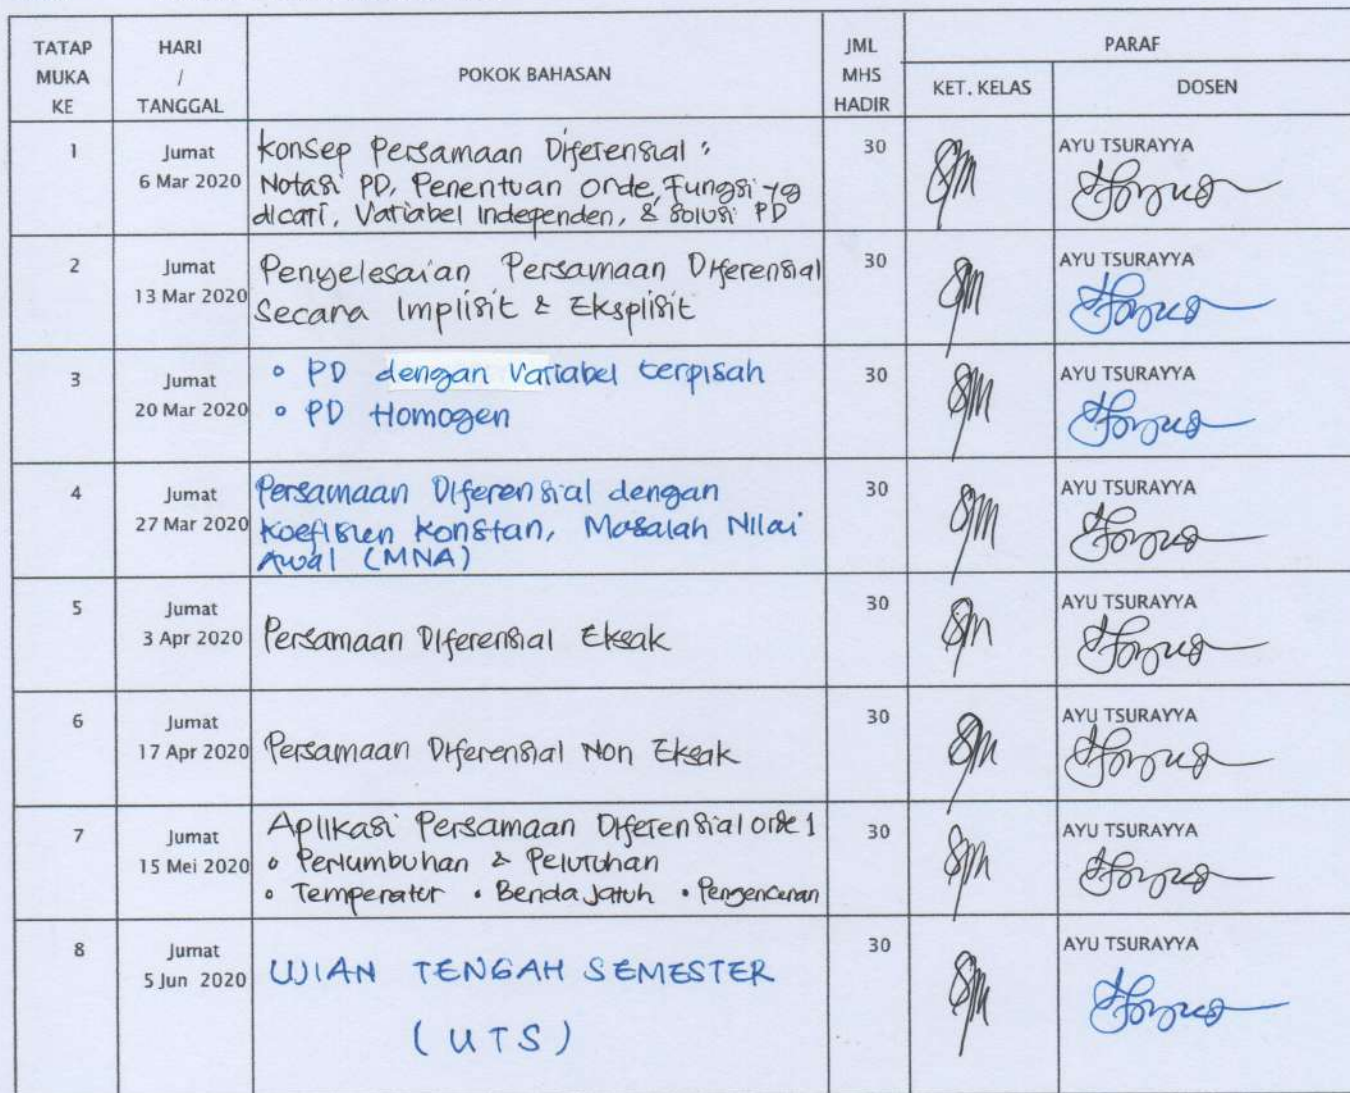 TATAP MUKA KE
HARI / TANGGAL
POKOK BAHASAN
JML MHS HADIR
PARAF
KET. KELAS
DOSEN
1
Jumat
6 Mar 2020
Konsep Persamaan Diferensial :
Notasi PD, Penentuan orde, Fungsi yg
dicari, Variabel Independen, & solusi PD
30
AYU TSURAYYA
2
Jumat
13 Mar 2020
Penyelesaian Persamaan Diferensial
Secara Implisit & Eksplisit
30
AYU TSURAYYA
3
Jumat
20 Mar 2020
• PD dengan Variabel terpisah
• PD Homogen
30
AYU TSURAYYA
4
Jumat
27 Mar 2020
Persamaan Diferensial dengan
Koefisien Konstan, Masalah Nilai
Awal (MNA)
30
AYU TSURAYYA
5
Jumat
3 Apr 2020
Persamaan Diferensial Eksak
30
AYU TSURAYYA
6
Jumat
17 Apr 2020
Persamaan Diferensial Non Eksak
30
AYU TSURAYYA
7
Jumat
15 Mei 2020
Aplikasi Persamaan Diferensial orde 1
• Pertumbuhan & Peluruhan
• Temperatur • Benda Jatuh • Pengenceran
30
AYU TSURAYYA
8
Jumat
5 Jun 2020
UJIAN TENGAH SEMESTER
(UTS)
30
AYU TSURAYYA